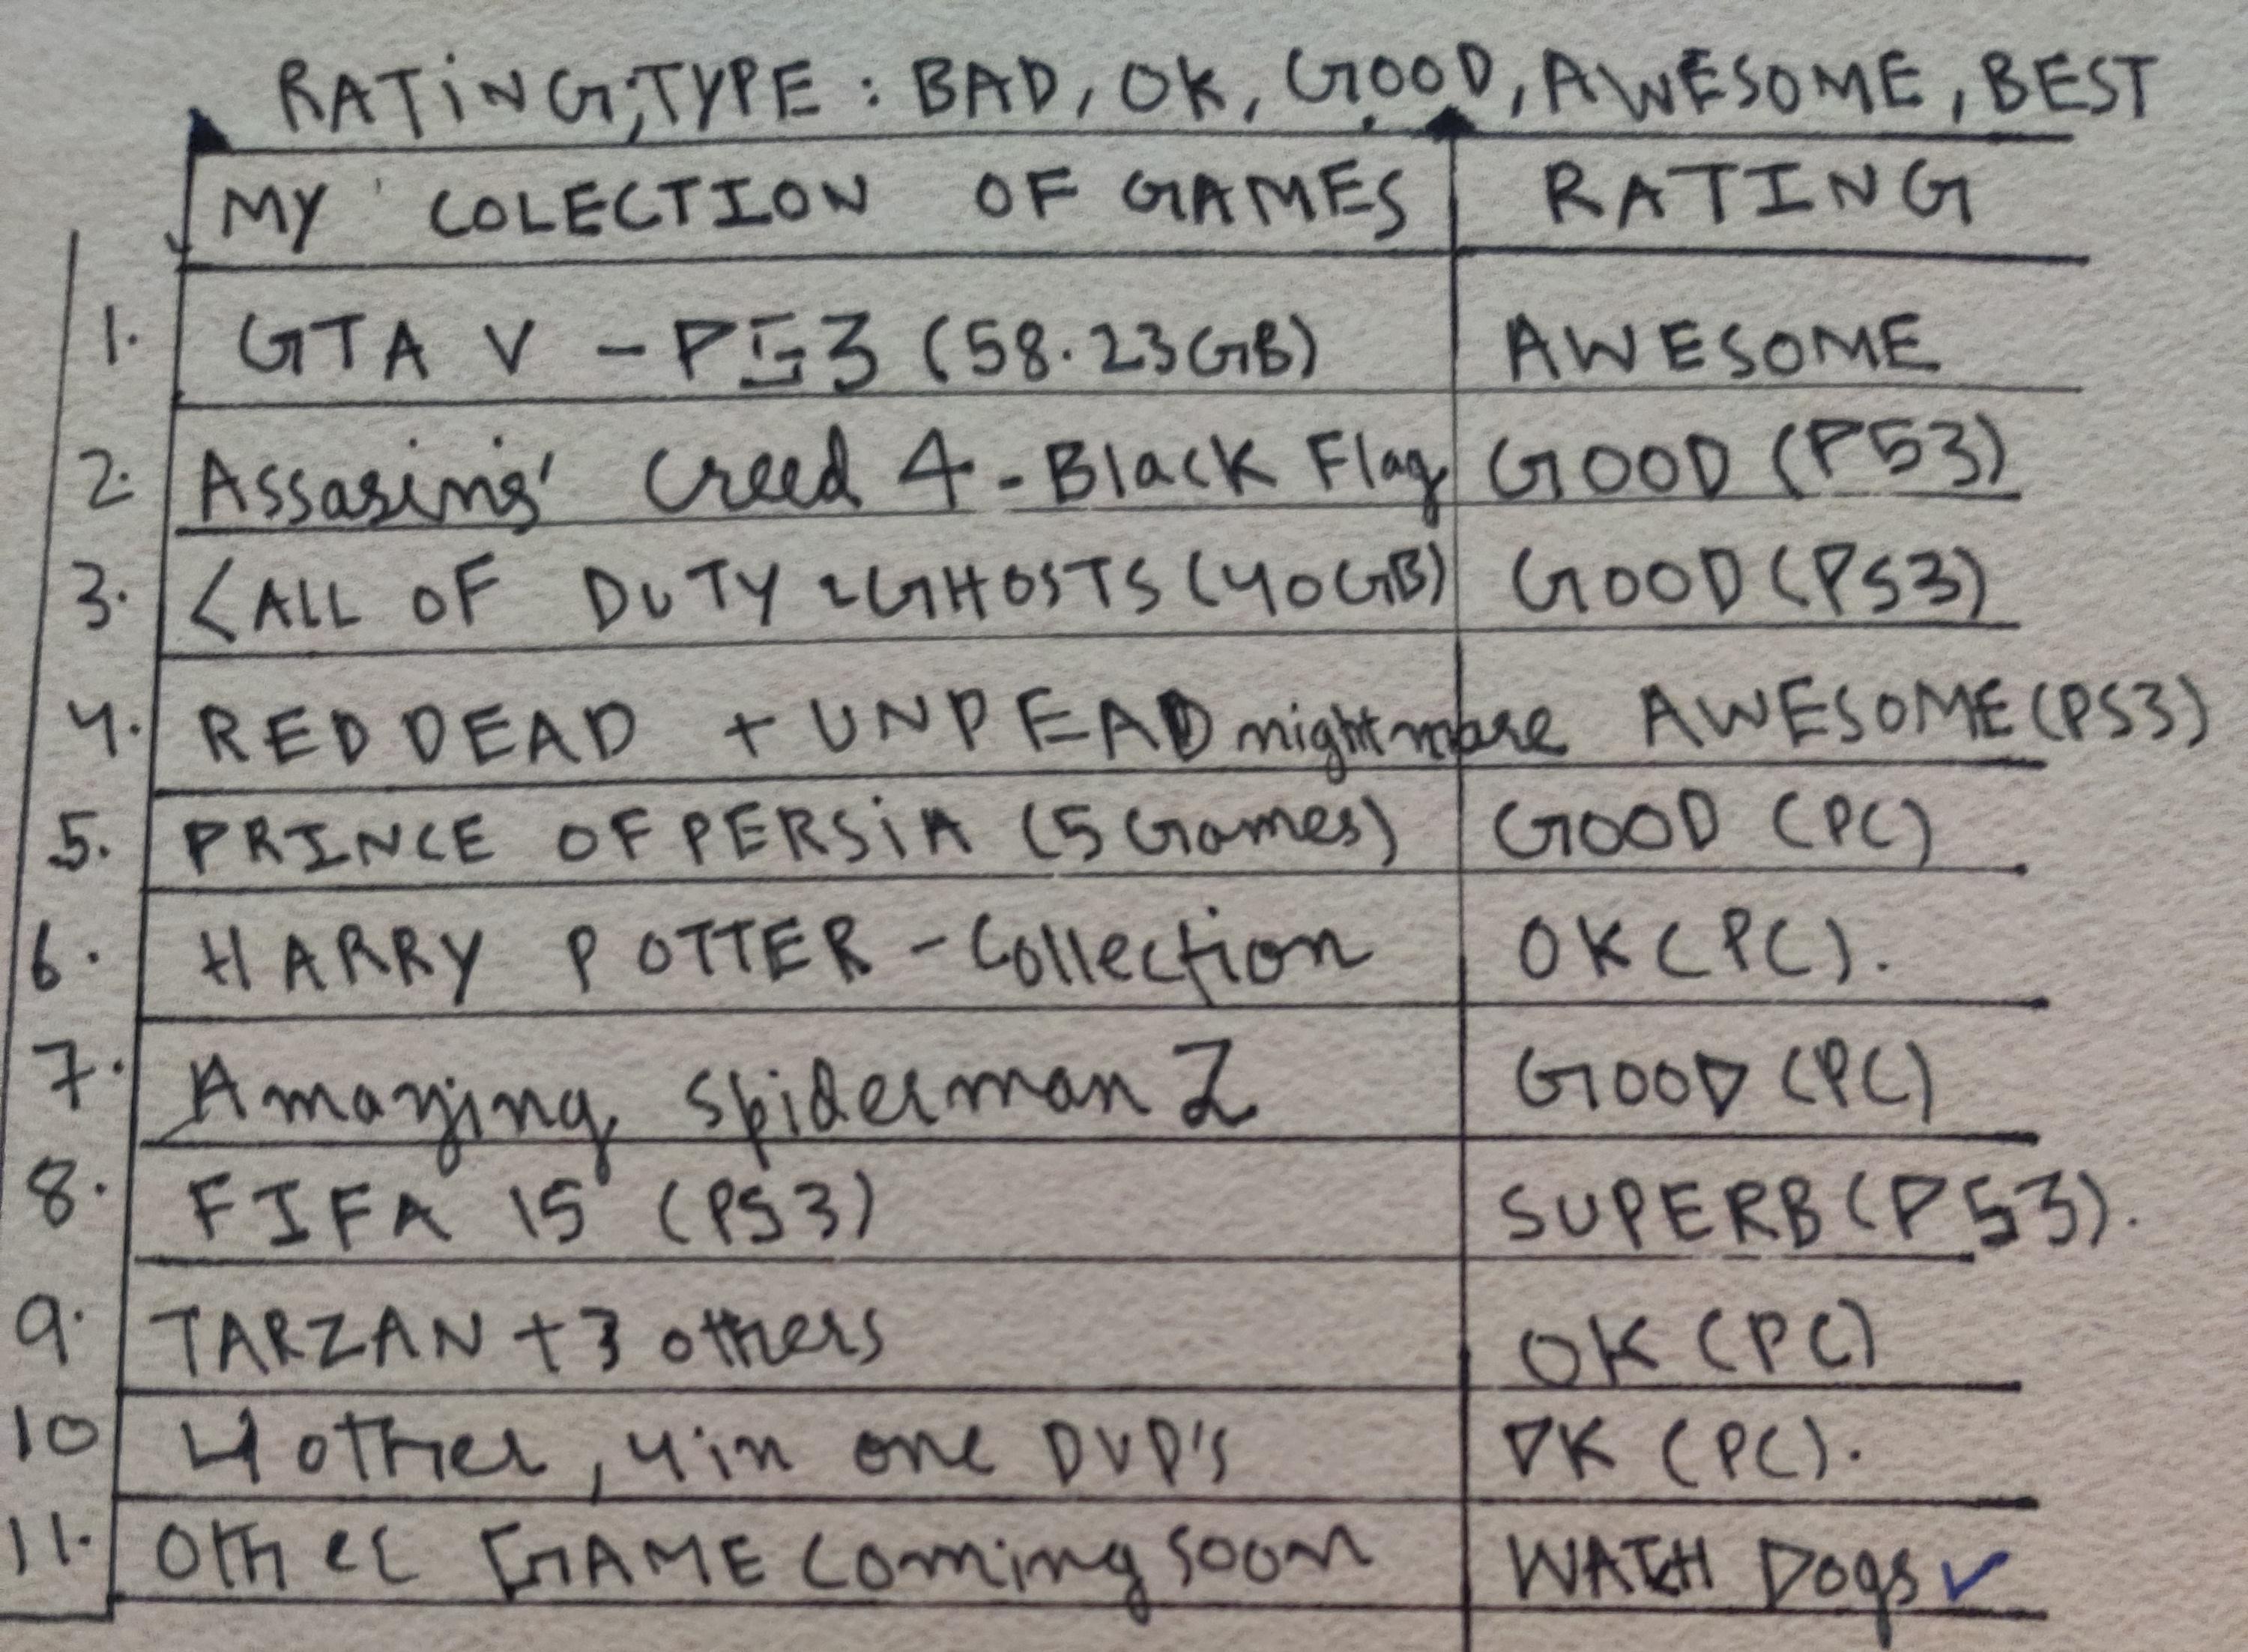 RATiNG;TYPE : BAD, OK, GOOD, AWESOME, BEST
MY COLECTION OF GAMES RATING
1. GTA V - PS3 (58.23GB) AWESOME
2. Assasins' Creed 4 - Black Flag GOOD (PS3)
3. CALL OF DUTY : GHOSTS (40GB) GOOD (PS3)
4. RED DEAD + UNDEAD nightmare AWESOME (PS3)
5. PRINCE OF PERSiA (5 Games) GOOD (PC)
6. HARRY POTTER - Collection OK (PC).
7. Amazing spiderman 2 GOOD (PC)
8. FIFA 15 (PS3) SUPERB (PS3).
9. TARZAN + 3 others OK (PC)
10 4 other, 4 in one DVD'S OK (PC).
11. Other GAME coming soon WATCH Dogs ✓